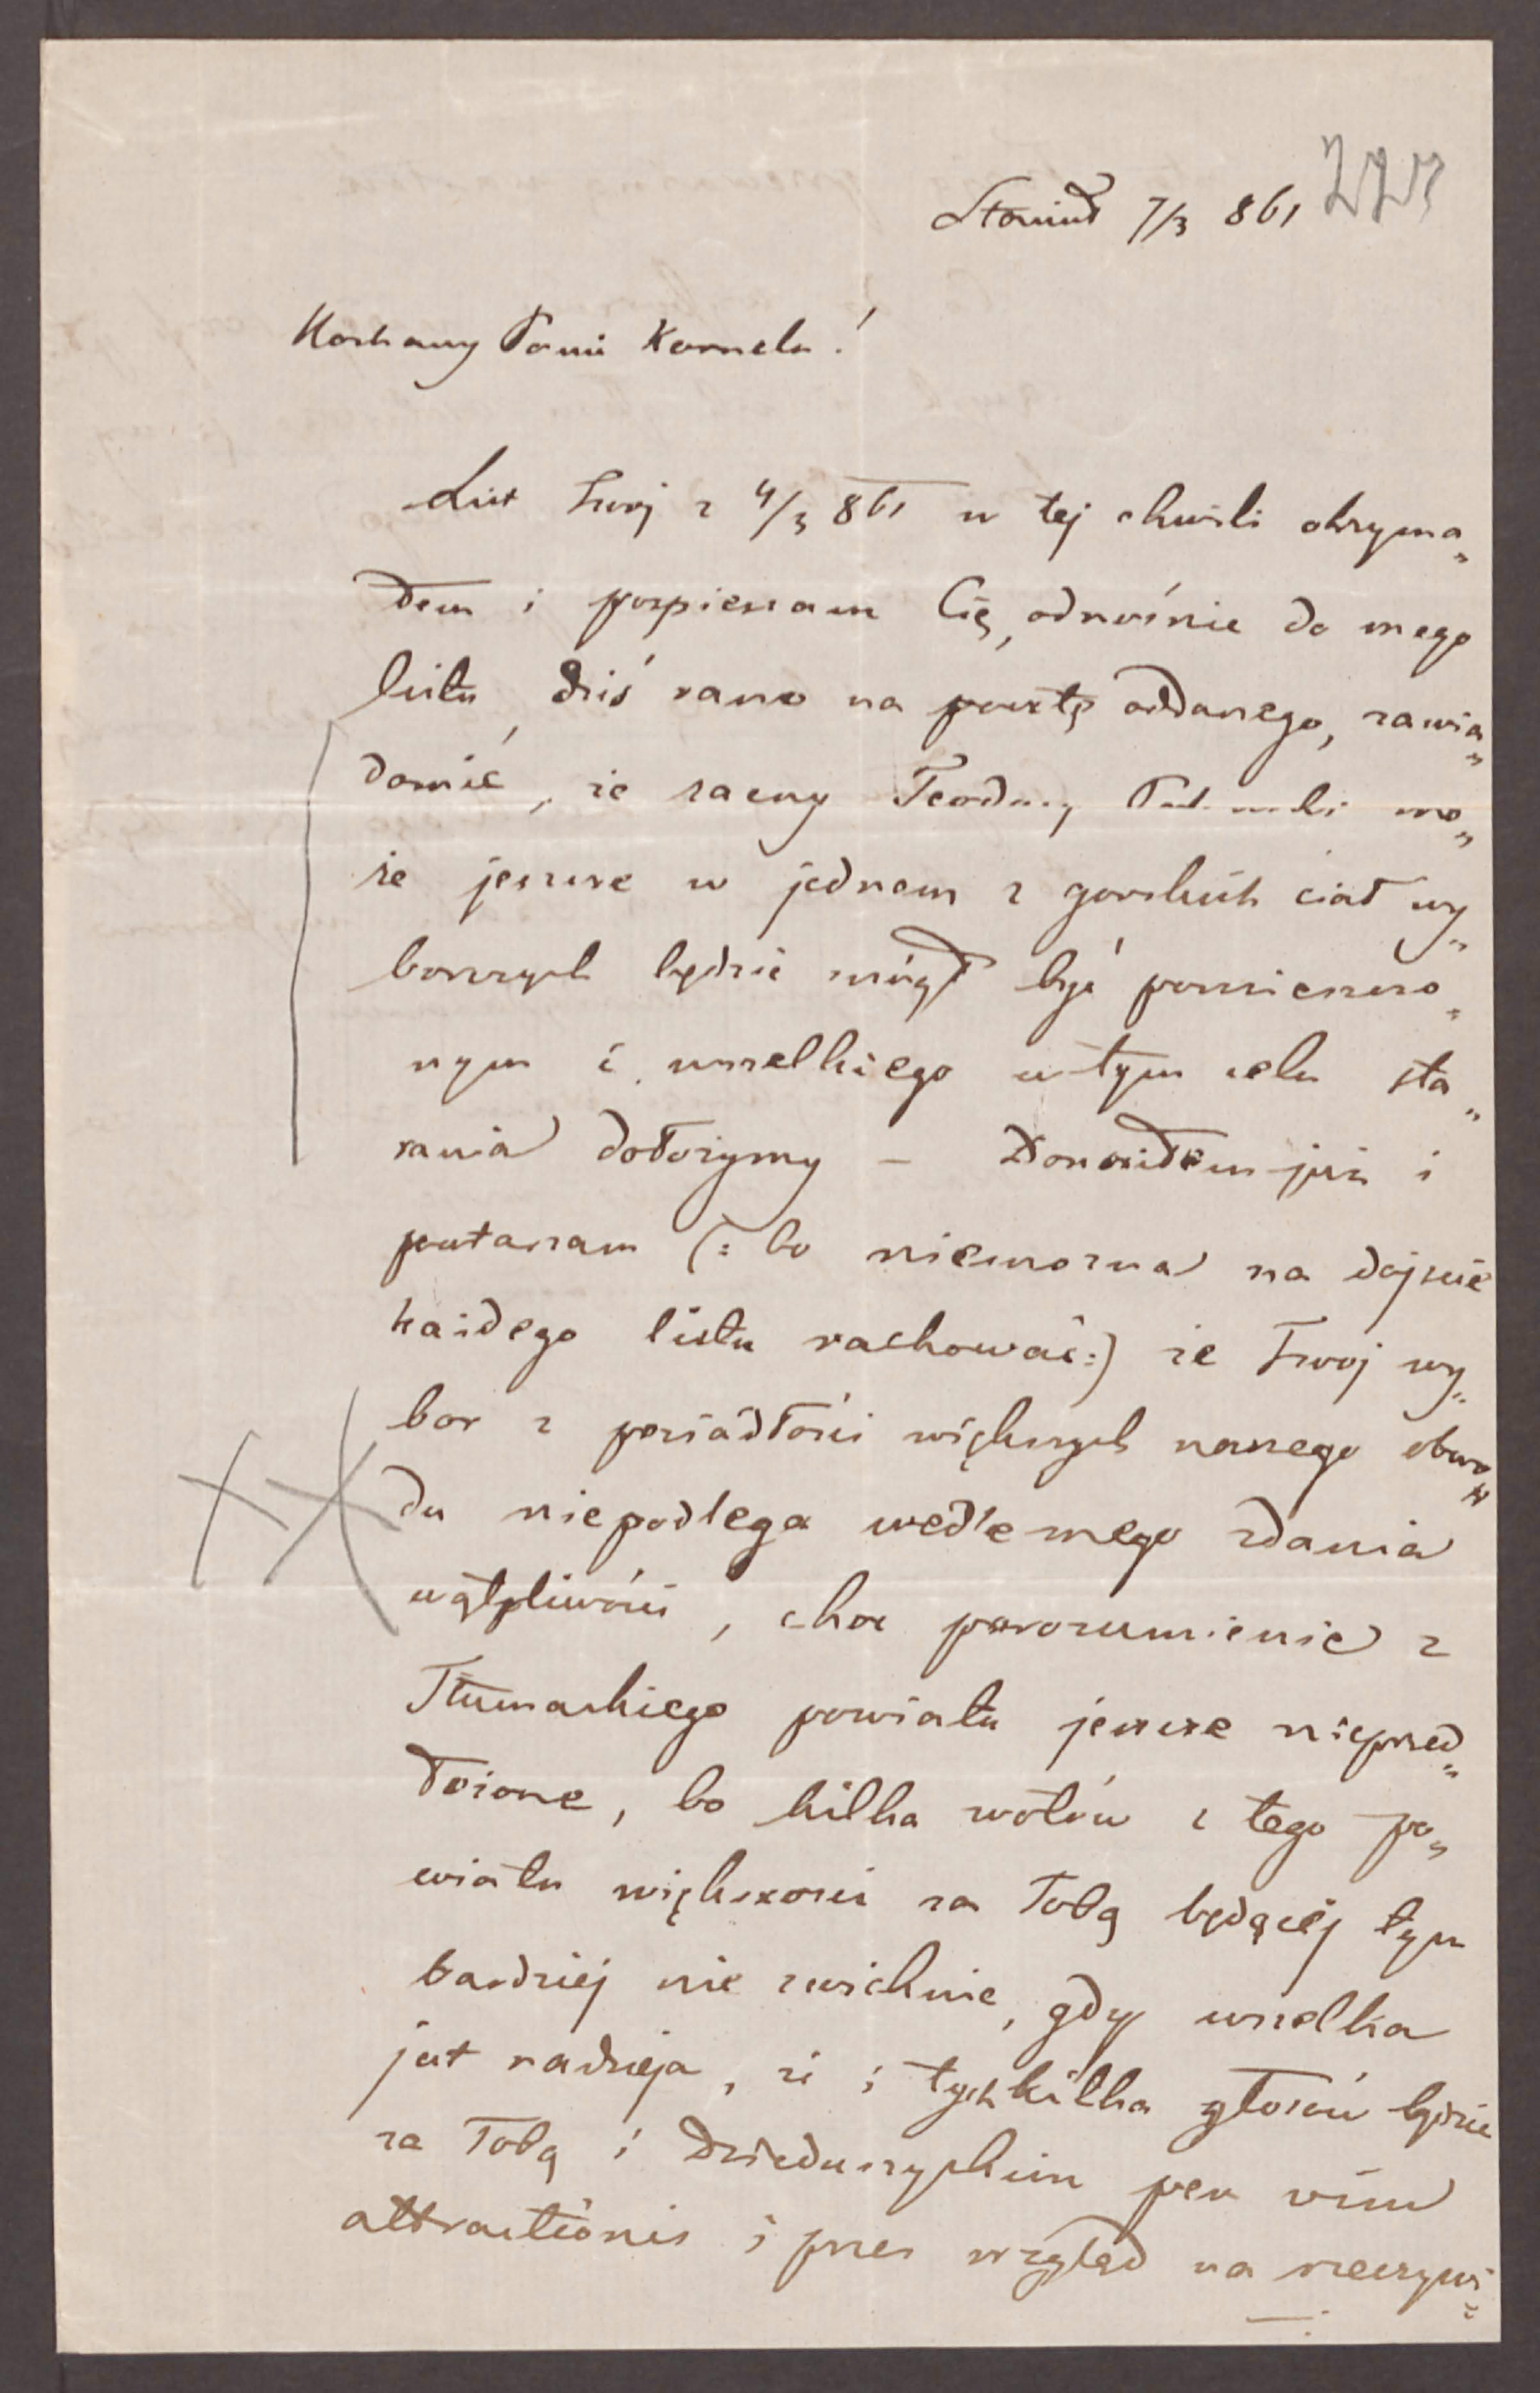 Stanisł 7/3 861
Kochany Panie Kornelu!
List Twoj z 4/3 861 w tej chwili otrzyma„
łem i pospieszam Cię, odnośnie do mego
listu, dziś rano na pocztę oddanego, zawia„
domić, że zacny Teodor mo„
że jeszcze w jednem z gorskich ciał wy„
borczych będzie mógł być pomieszczo„
nym i wszelkiego w tym celu sta„
rania dołożymy – Donosiłem już i
powtarzam (: bo niemozna na dojscie
każdego listu rachować :) że Twoj wy„
bor z posiadłości większych naszego obwo„
du niepodlega wedle mego zdania
wątpliwości, choc porozumienie z
Tłumackiego powiatu jeszcze nieprzed„
łożone, bo kilka wotów z tego po„
wiatu większosci za Tobą będącéj tym
bardziej nie zwichnie, gdy wszelka
jest nadzieja, że i tych kilka głosów będzie
za Tobą i Dzieduszyckim per vim
attractionis i przez wzgląd na rzeczywi„